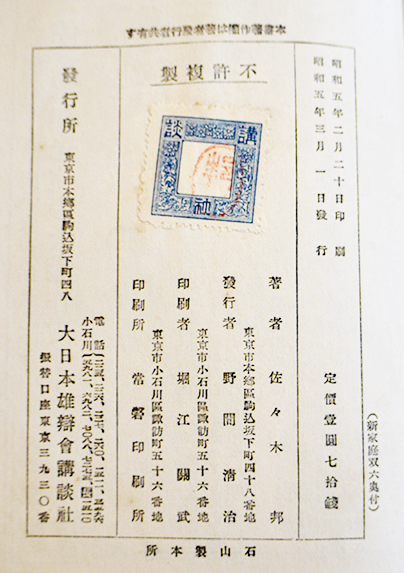 本書著作權は著者發行者共有す
昭和五年二月二十日印刷
昭和五年三月一日發行
定價壹圓七拾錢
（新家庭双六奥付）
不許複製
講談社
著者 佐々木邦
東京市本鄕區駒込坂下町四十八番地
發行者 野間淸治
東京市小石川區諏訪町五十六番地
印刷者 堀江關武
東京市小石川區諏訪町五十六番地
印刷所 常磐印刷所
發行所 東京市本鄕區駒込坂下町四八
大日本雄辯會講談社
電話
小石川
振替口座東京三九三〇番
石山製本所